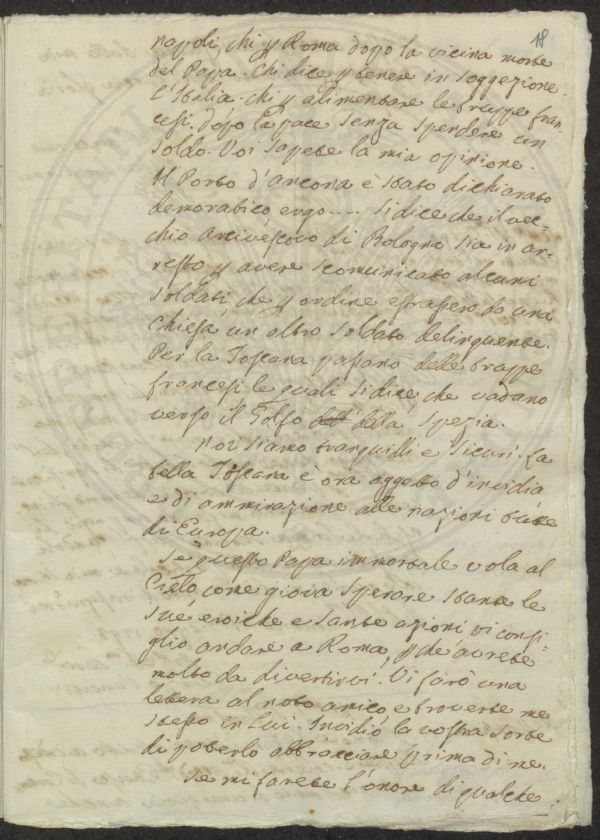 18
napoli, chi p Roma dopo la vicina morte
del Papa. Chi dice p tenere in soggezione
l'Italia. chi p alimentare le truppe fran-
cesi, dopo la pace senza spendere un
soldo. Voi sapete la mia opinione.
Il Porto d'Ancona è stato dichiarato
democratico ergo.... Si dice che il vec-
chio Arcivescovo di Bologna sia in ar-
resto p avere scomunicato alcuni
soldati, che p ordine estrassero da una
chiesa un altro soldato delinquente.
Per la Toscana passano delle truppe
francesi le quali si dice che vadano
verso il Golfo della Spezia.
Noi siamo tranquilli e sicuri. La
bella Toscana è ora oggetto d'invidia
e di ammirazione alle nazioni tutte
di Europa.
Se questo Papa immortale vola al
Cielo, come giova sperare stante le
sue eroiche e sante azioni vi consi-
glio andare a Roma, p che avrete
molto da divertirvi. Vi farò una
lettera al noto amico e troverete me
stesso in Lui. Invidio la vostra sorte
di poterlo abbracciare prima di me.
Se mi farete l'onore di qualche